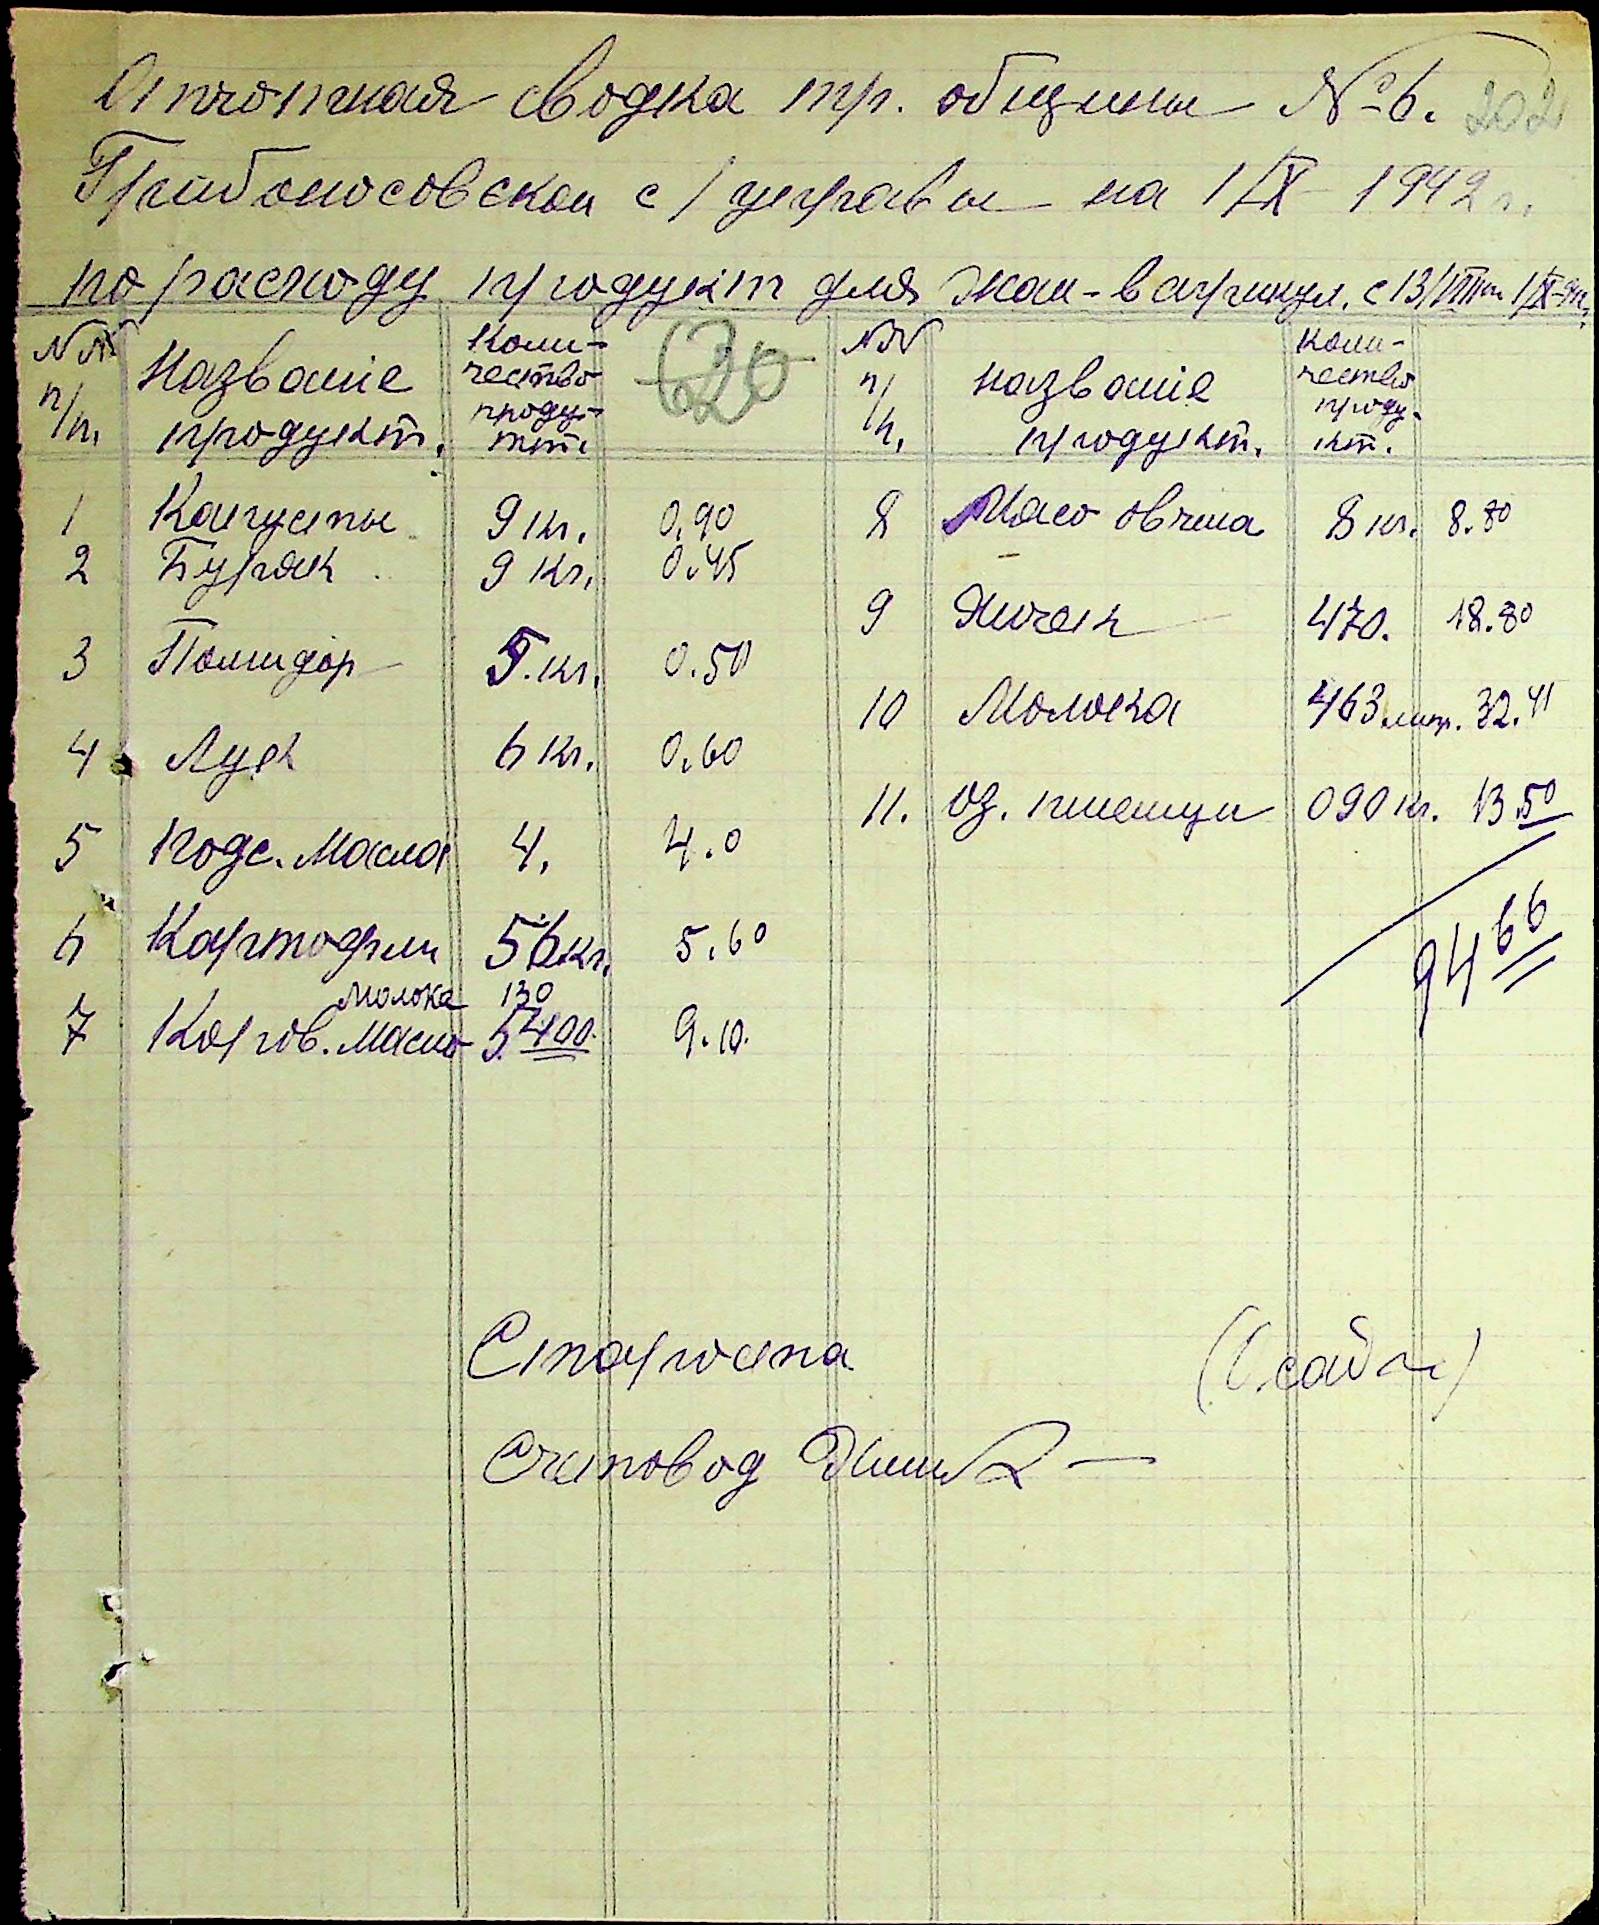 Отчотная сводка тр. общины № 6. 202
Грибоносовской с/управы на 1/IX 1942 г.
по расходу продукт для с 13/VIII по 1/IX-42
№№ п/п. Название продукт. Коли-чество проду-ктт. 620 №№ п/п. Название продукт. Коли-чество проду-кт.
1 Капусты 9 кг. 0.90 8 Мясо овчина 8 кг. 8.80
2 Буряк 9 кг. 0.45
9 Яичек 470. 18.80
3 Помидор 5. кг. 0.50
10 Молока 463 литр. 32.41
4 Лук 6 кг. 0.60
11. оз. пшеници 090 кг. 13.50
5 Подс. Масла 4. 4.0
94 66
6 Картофли 56 кг. 5.60
Молока 130
7 Коров. Масло 5.400. 9.10.
Староста
Счетовод